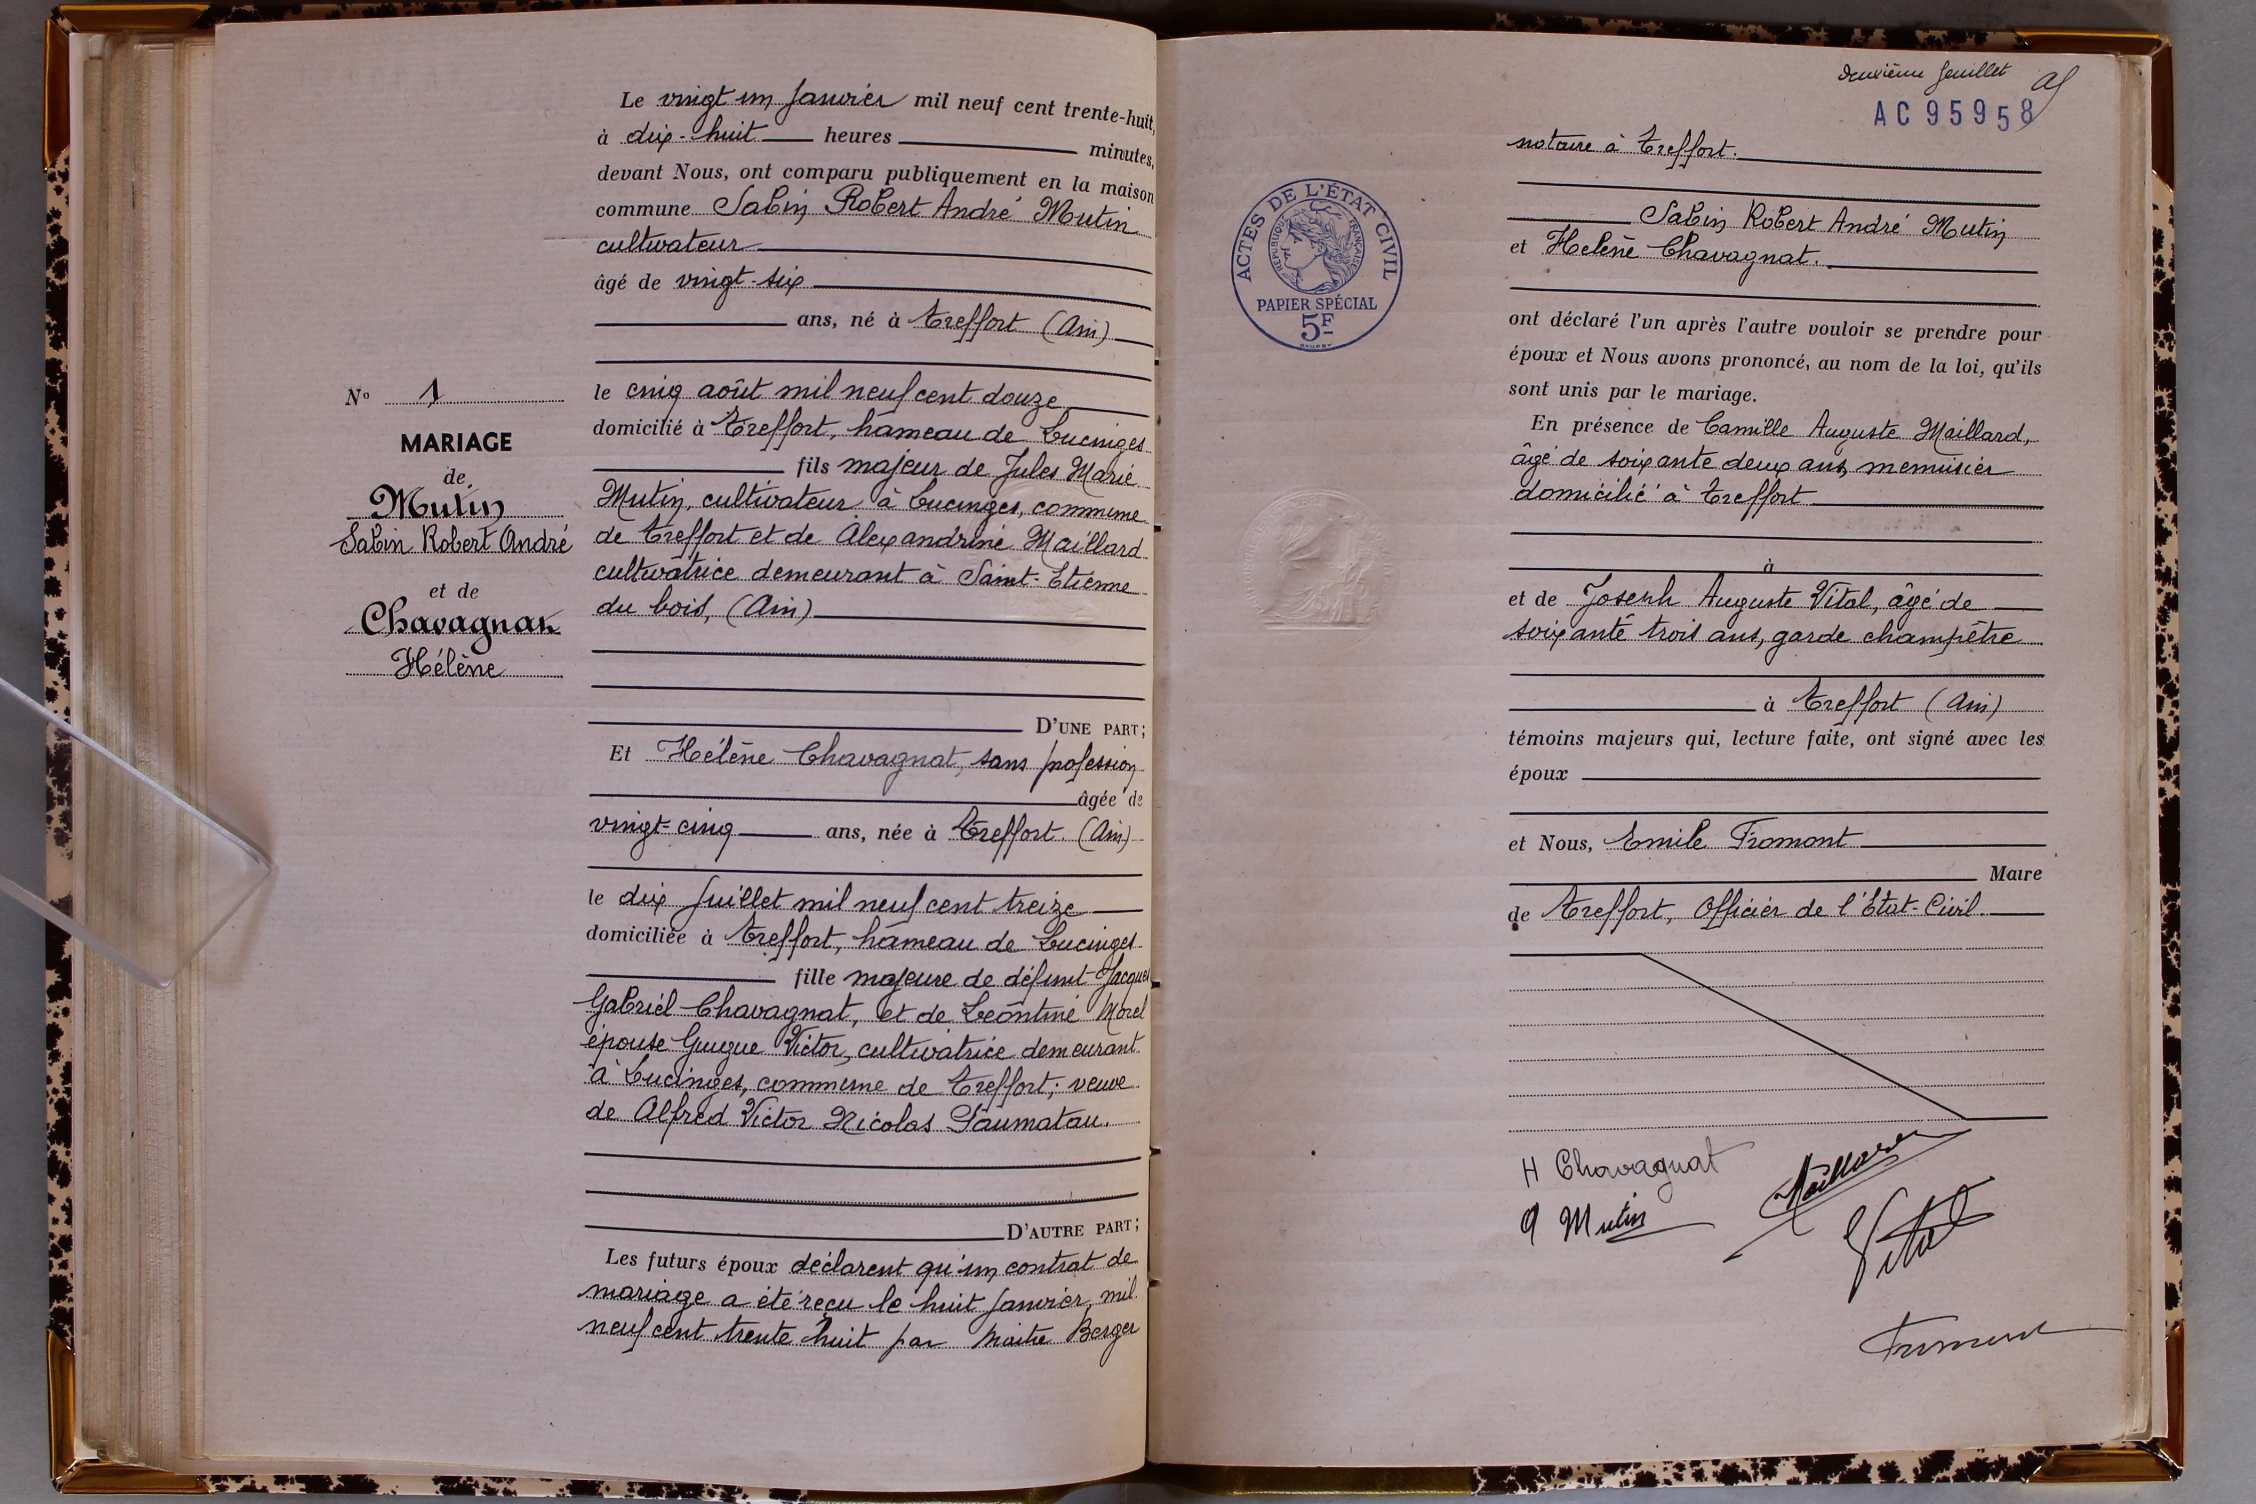 Le vingt un Janvier mil neuf cent trente-huit,
à dix-huit heures minutes,
devant Nous, ont comparu publiquement en la maison
commune Sabin Robert André Mutin
cultivateur
âgé de vingt-six
ans, né à Treffort (Ain)
le cinq août mil neuf cent douze
domicilié à Treffort, hameau de Lucinges
fils majeur de Jules Marie
Mutin, cultivateur à Lucinges, commune
de Treffort et de Alexandrine Maillard
cultivatrice demeurant à Saint-Etienne
du bois, (Ain)
D'UNE PART;
Et Hélène Chavagnat, sans profession
âgée de
vingt-cinq ans, née à Treffort (Ain)
le dix Juillet mil neuf cent treize
domiciliée à Treffort, hameau de Lucinges
fille majeure de défunt Jacques
Gabriel Chavagnat, et de Léontine Morel
épouse Guigue Victor, cultivatrice demeurant
à Lucinges, commune de Treffort; veuve
de Alfred Victor Nicolas Paumatau.
D'AUTRE PART;
Les futurs époux déclarent qu'un contrat de
mariage a été reçu le huit Janvier, mil
neuf cent trente huit par Maître Berger
No 1
MARIAGE
de
Mutin
Sabin Robert André
et de
Chavagnat
Hélène
Deuxième feuillet
AC 95958
ACTES DE L'ÉTAT CIVIL
RÉPUBLIQUE FRANÇAISE
PAPIER SPÉCIAL
5F
notaire à Treffort.
Sabin Robert André Mutin
et Hélène Chavagnat.
ont déclaré l'un après l'autre vouloir se prendre pour
époux et Nous avons prononcé, au nom de la loi, qu'ils
sont unis par le mariage.
En présence de Camille Auguste Maillard,
âgé de soixante deux ans, menuisier
domicilié à Treffort
à
et de Joseph Auguste Vital, âgé de
soixante trois ans, garde champêtre
à Treffort (Ain)
témoins majeurs qui, lecture faite, ont signé avec les
époux
et Nous, Emile Fromont
Maire
de Treffort, Officier de l'Etat-Civil.
H Chavagnat
Maillard
Mutin
Vital
Fromont